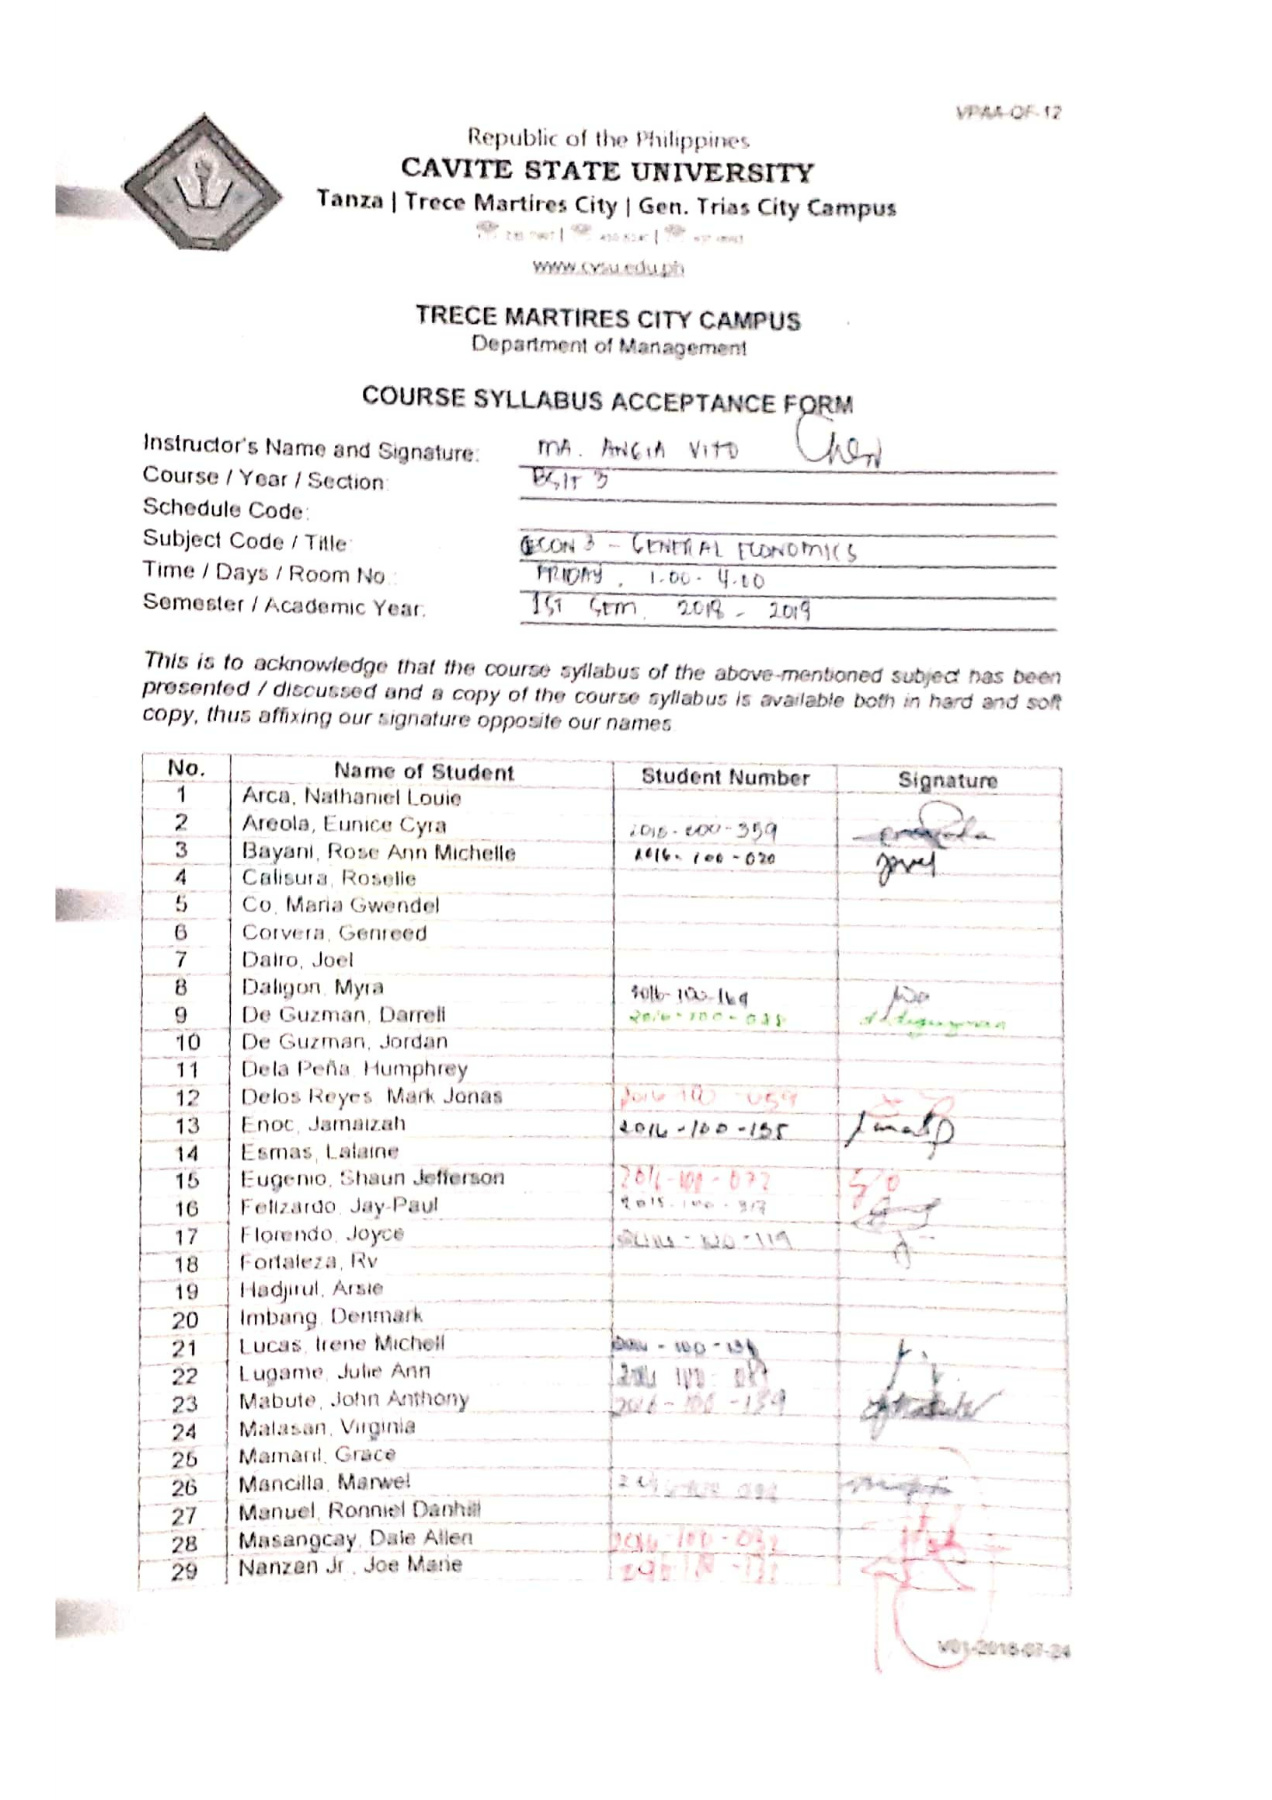 VPAA-QF-12
Republic of the Philippines
CAVITE STATE UNIVERSITY
Tanza | Trece Martires City | Gen. Trias City Campus
www.cvsu.edu.ph
TRECE MARTIRES CITY CAMPUS
Department of Management
COURSE SYLLABUS ACCEPTANCE FORM
Instructor's Name and Signature: MA. ANGIA VITO
Course / Year / Section: BSIT 3
Schedule Code:
Subject Code / Title ECON 3 - GENERAL ECONOMICS
Time / Days / Room No.: FRIDAY, 1:00 - 4:00
Semester / Academic Year: 1ST SEM. 2018 - 2019
This is to acknowledge that the course syllabus of the above-mentioned subject has been
presented / discussed and a copy of the course syllabus is available both in hard and soft
copy, thus affixing our signature opposite our names
No. Name of Student Student Number Signature
1 Arca, Nathaniel Louie
2 Areola, Eunice Cyra
3 Bayani, Rose Ann Michelle 2016-100-020
4 Calisura, Roselle
5 Co, Maria Gwendel
6 Corvera, Genreed
7 Dairo, Joel
8 Daligon, Myra 2016-100-169
9 De Guzman, Darrell 2016-100-038
10 De Guzman, Jordan
11 Dela Peña, Humphrey
12 Delos Reyes, Mark Jonas 2016-100-059
13 Enoc, Jamaizah 2016-100-135
14 Esmas, Lalaine
15 Eugenio, Shaun Jefferson 2016-100-072
16 Felizardo, Jay-Paul 2015-100-317
17 Florendo, Joyce 2016-100-119
18 Fortaleza, Rv
19 Hadjirul, Arsie
20 Imbang, Denmark
21 Lucas, Irene Michell
22 Lugame, Julie Ann
23 Mabute, John Anthony 2016-100-139
24 Malasan, Virginia
25 Mamaril, Grace
26 Mancilla, Marwel
27 Manuel, Ronniel Danhill
28 Masangcay, Dale Allen 2016-100-032
29 Nanzan Jr., Joe Marie
V01-2018-07-24